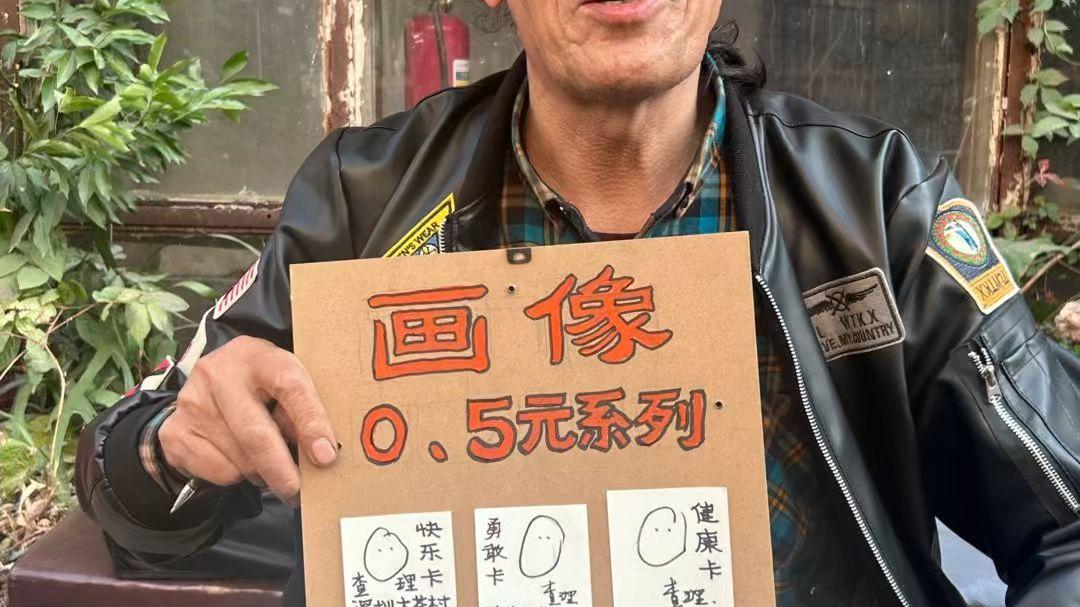 画像
0.5元系列
快乐卡
查理
勇敢卡
查理
健康卡
查理.
N'S WEAR
WTKX
VE.MY.COUNTRY